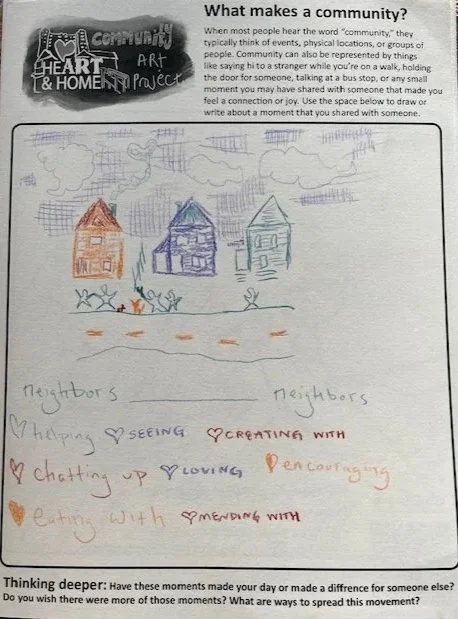 COMMUNITY
ART
PROJECT
HEART
& HOME
What makes a community?
When most people hear the word “community,” they
typically think of events, physical locations, or groups of
people. Community can also be represented by things
like saying hi to a stranger while you’re on a walk, holding
the door for someone, talking at a bus stop, or any small
moment you may have shared with someone that made you
feel a connection or joy. Use the space below to draw or
write about a moment that you shared with someone.
neighbors ________ neighbors
♡ helping ♡ SEEING ♡ CREATING WITH
♡ chatting up ♡ LOVING ♡ encouraging
♡ eating with ♡ MENDING WITH
Thinking deeper: Have these moments made your day or made a diffrence for someone else?
Do you wish there were more of those moments? What are ways to spread this movement?